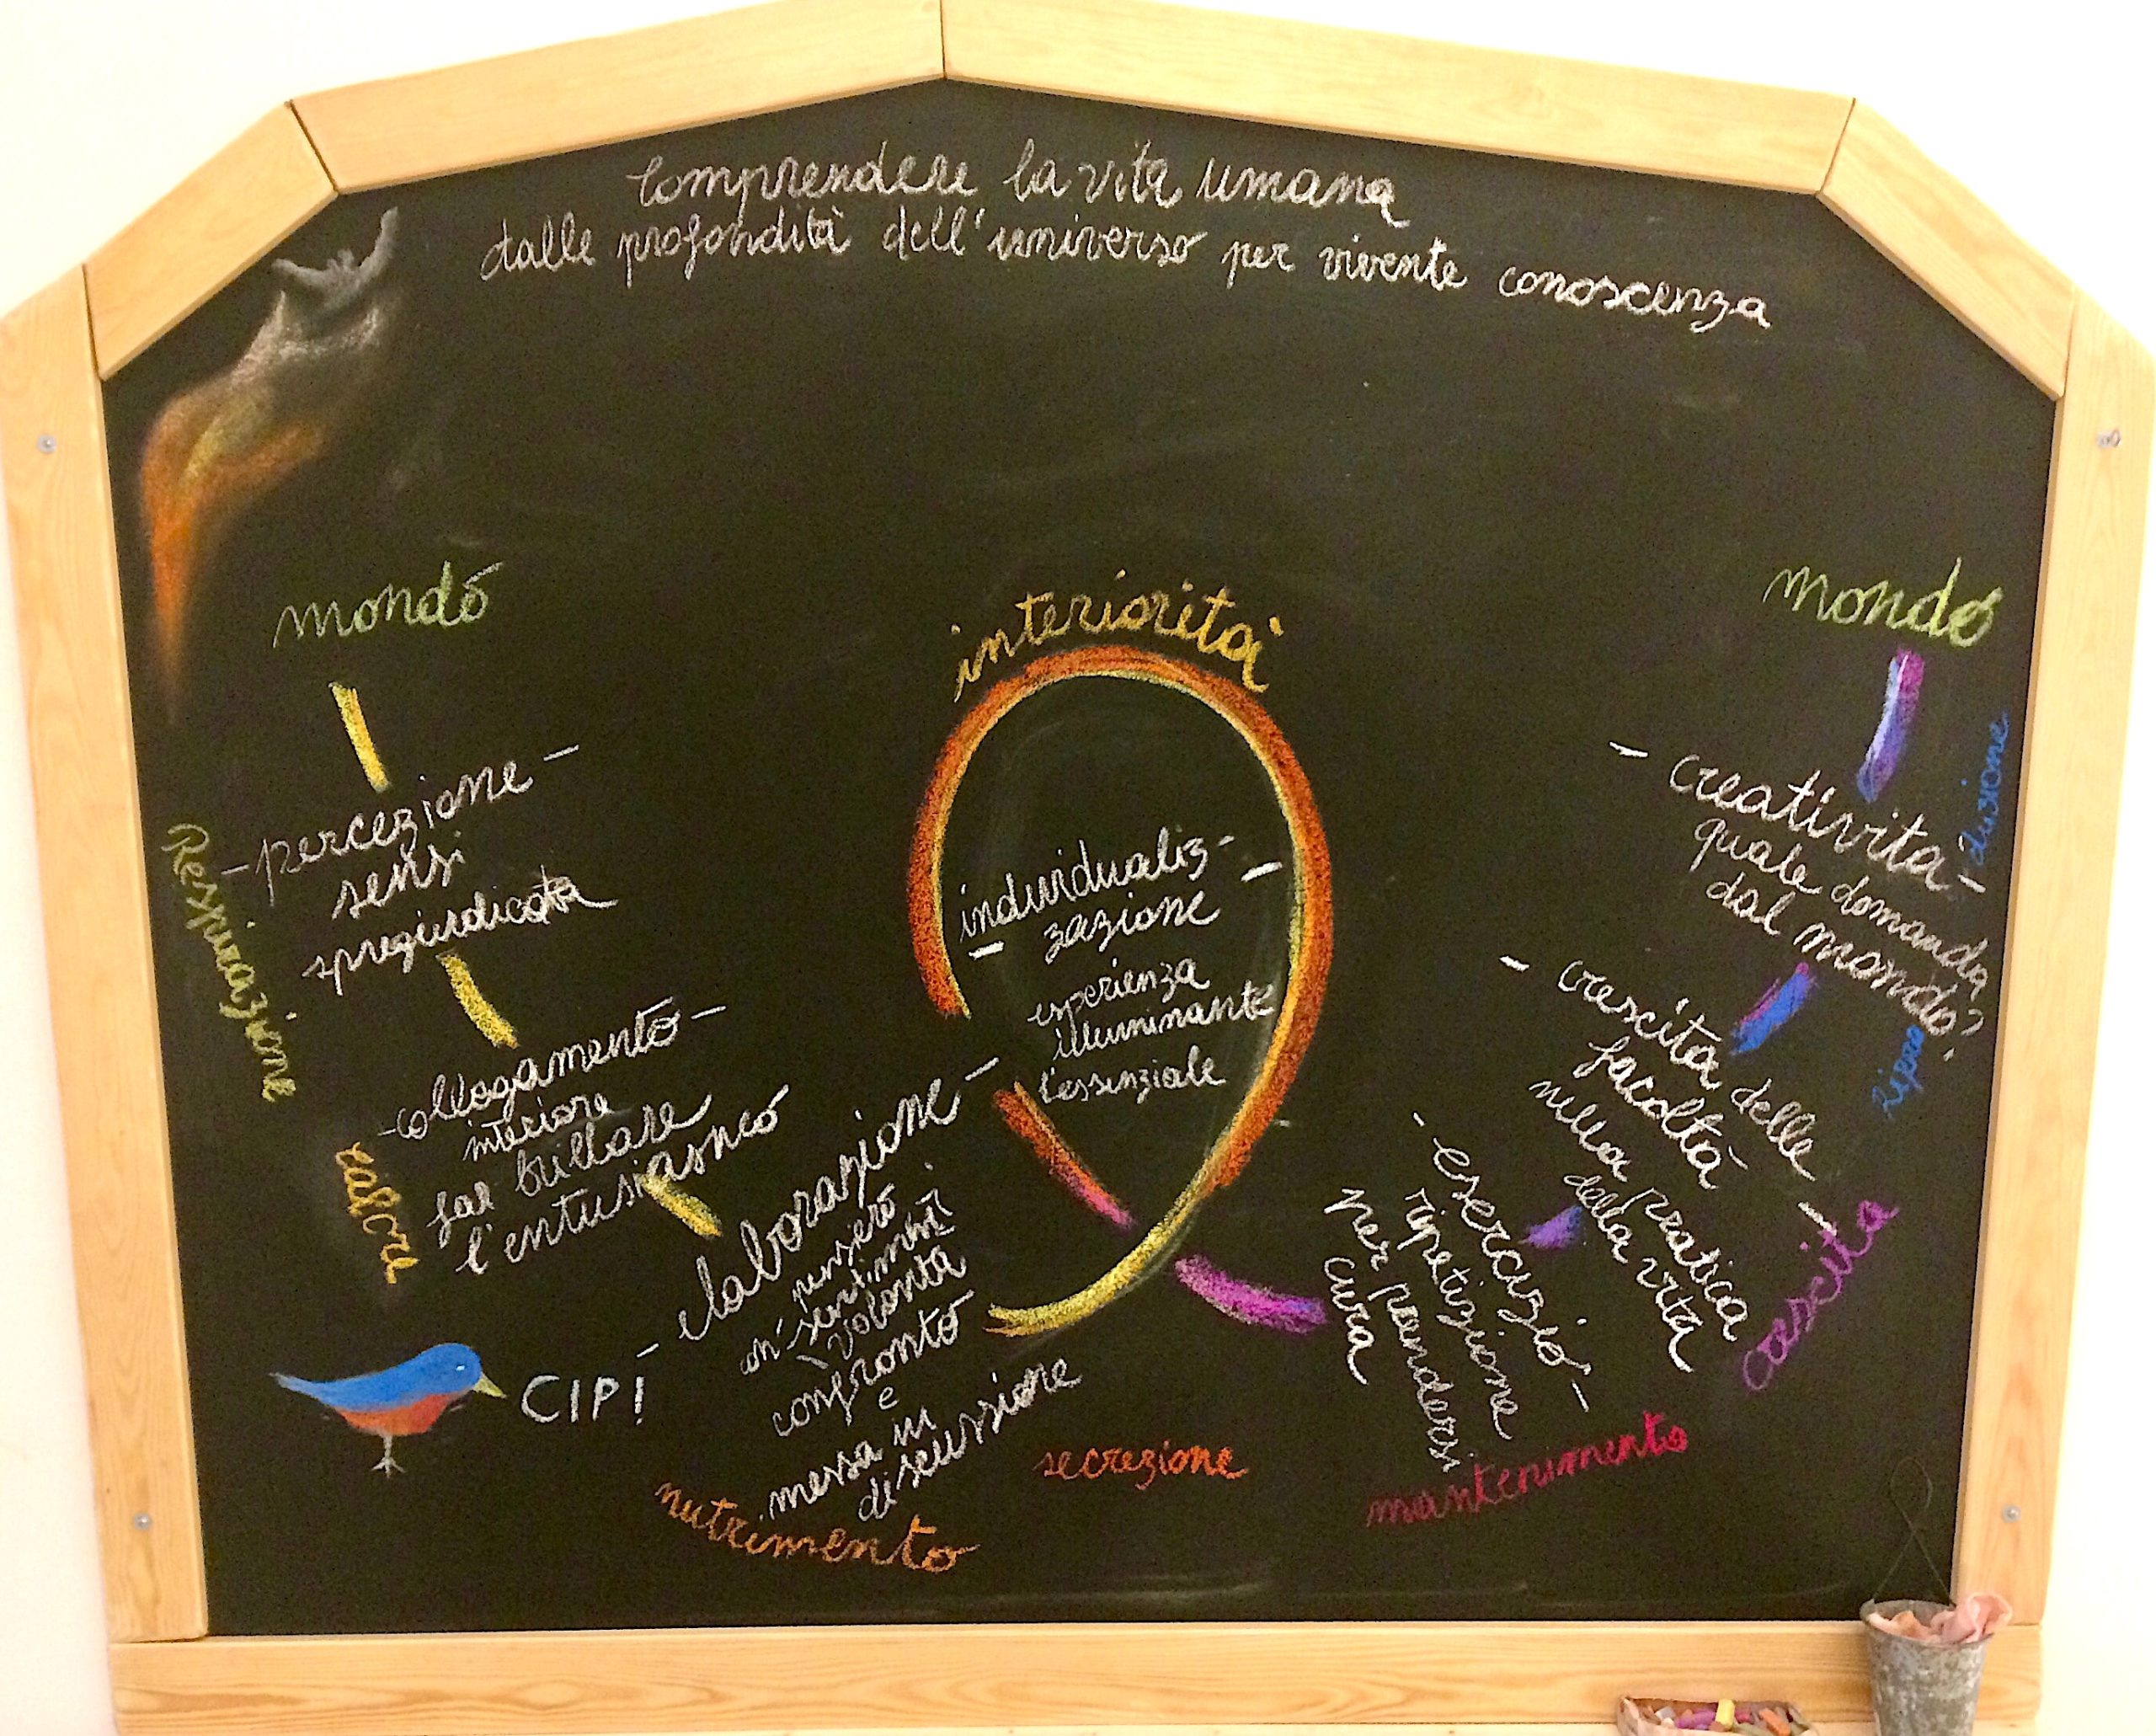 Comprendere la vita umana
dalle profondità dell'universo per vivente conoscenza
mondo
- percezione -
sensi
spregiudicata
Respirazione
- collegamento -
interiore
far brillare
l'entusiasmo
calore
CIP!
- elaborazione -
pensiero
sentimenti
volontà
confronto
e
messa in
discussione
nutrimento
interiorità
individualiz-
zazione
esperienza
illuminante
l'essenziale
secrezione
- esercizio -
ripetizione
per prendersi
cura
mantenimento
- crescita delle
facoltà
nella pratica
della vita
crescita
mondo
- creatività -
quale domanda
dal mondo?